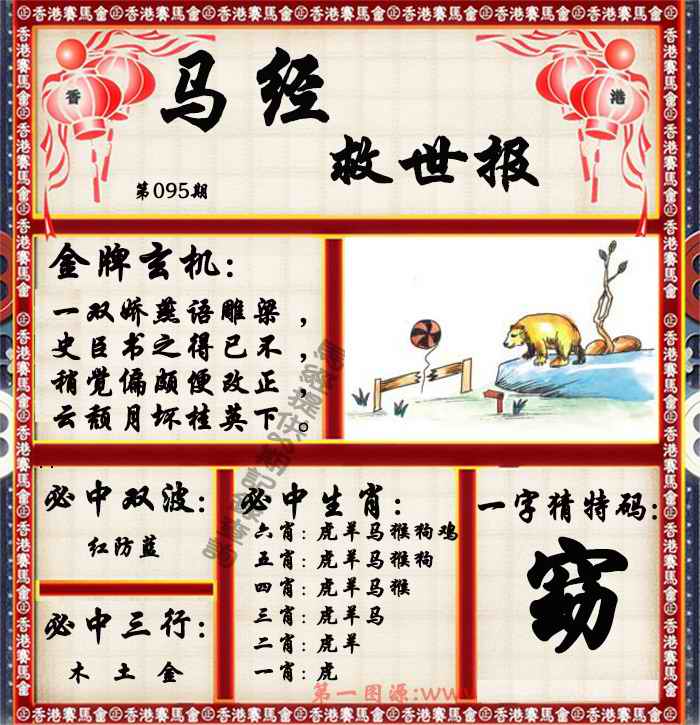 香港賽馬會
香
港
马经
救世报
第095期
金牌玄机：
一双娇燕语雕梁，
史臣书之得已不，
稍觉偏颇便改正，
云颓月坏桂英下。
必中双波：
红防蓝
必中三行：
木 土 金
必中生肖：
六肖：虎羊马猴狗鸡
五肖：虎羊马猴狗
四肖：虎羊马猴
三肖：虎羊马
二肖：虎羊
一肖：虎
一字猜特码：
窈
第一图源:www